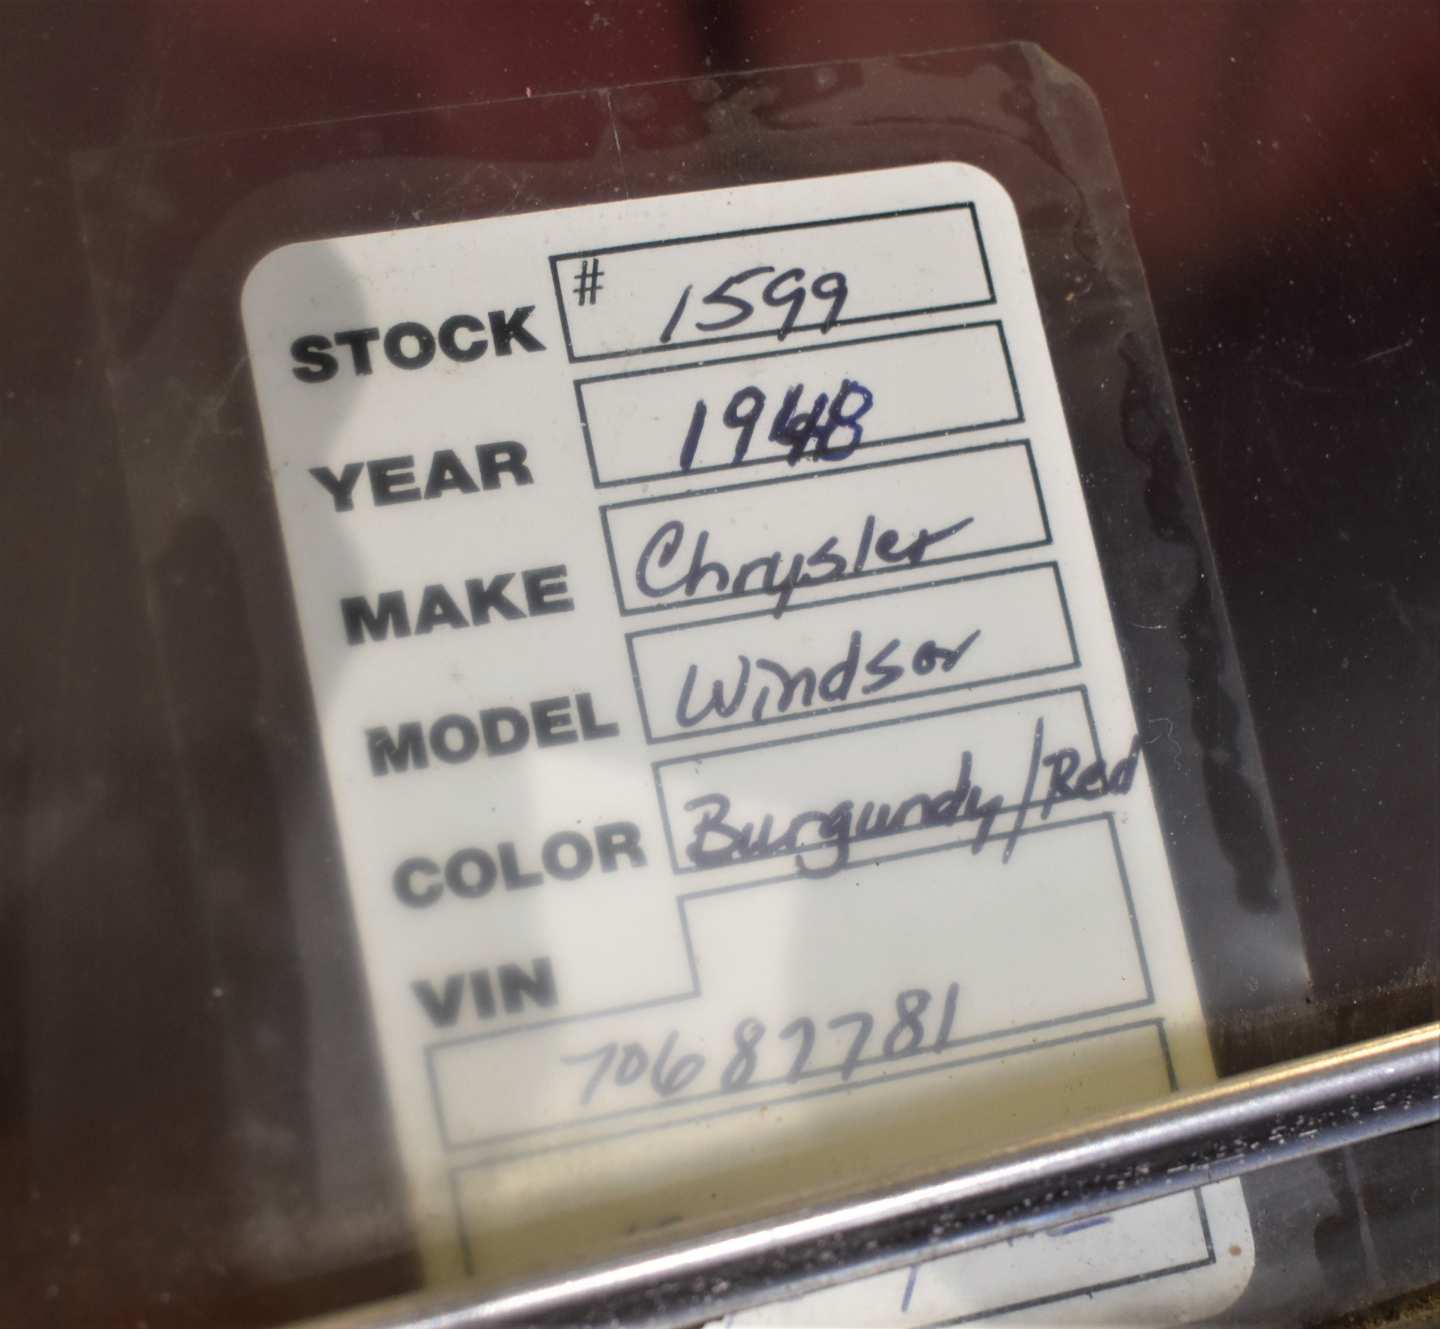 STOCK # 1599
YEAR 1948
MAKE Chrysler
MODEL Windsor
COLOR Burgundy/Red
VIN
70687781